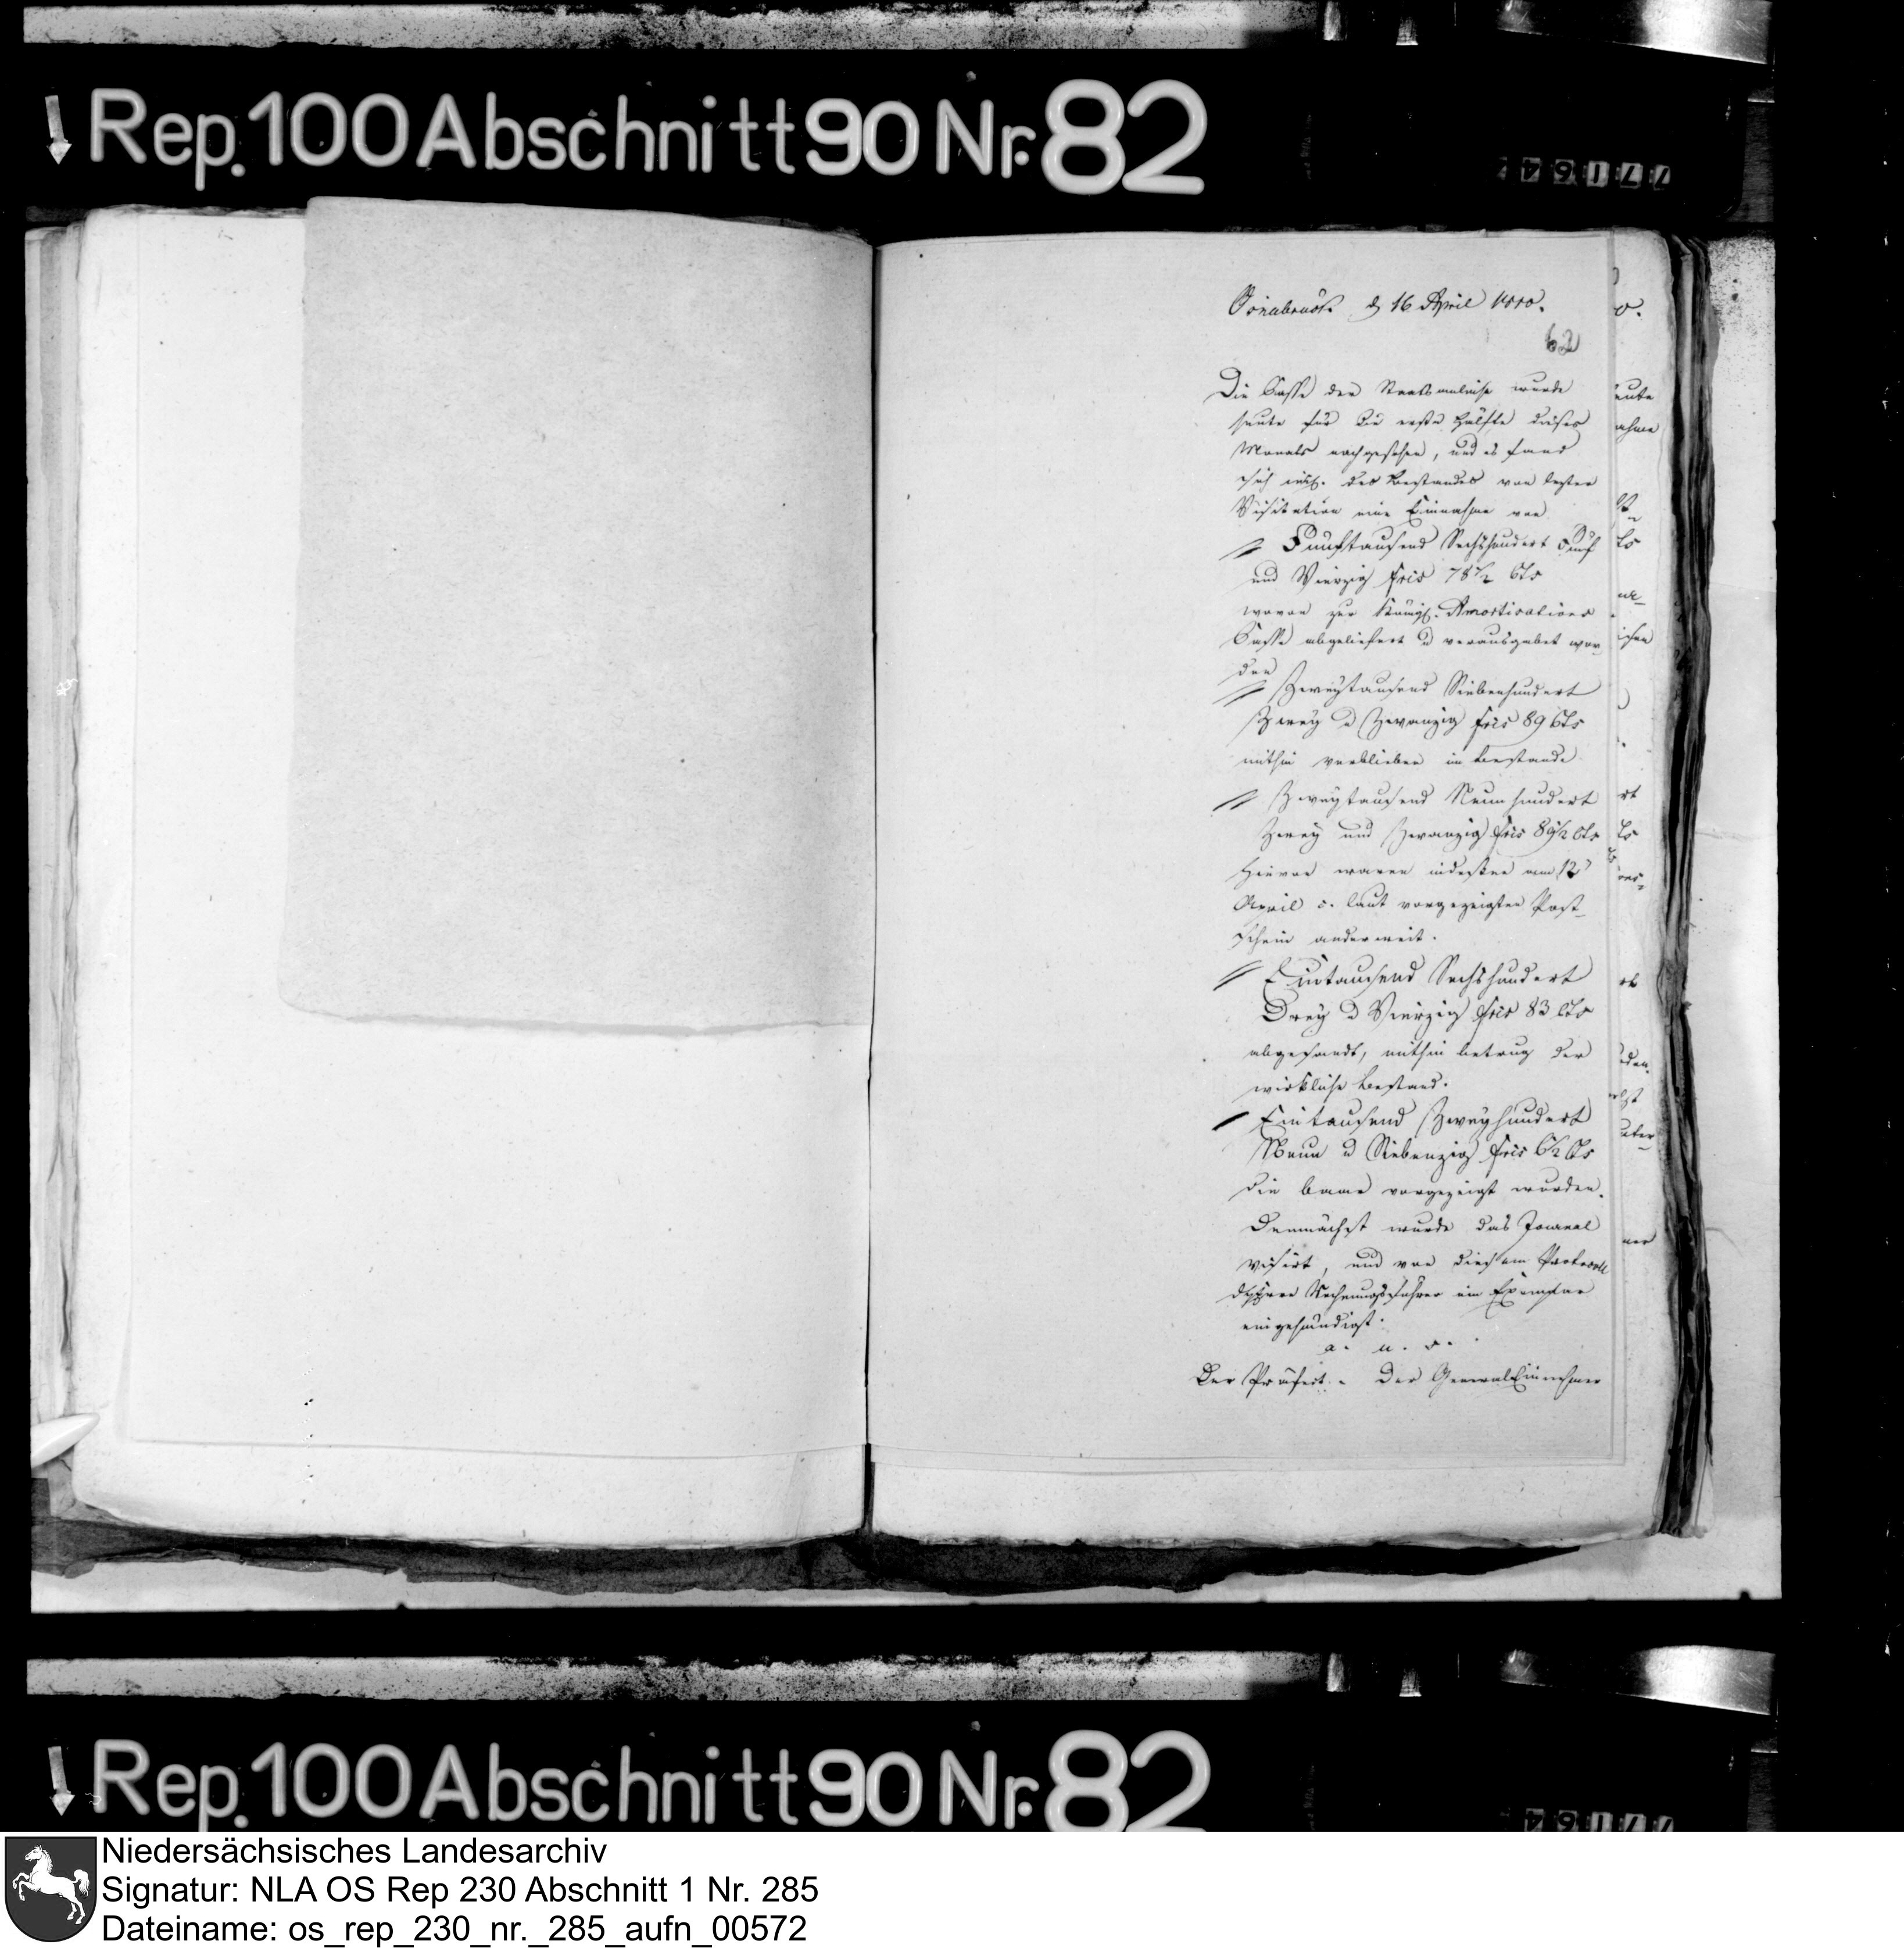 Rep. 100 Abschnitt 90 Nr. 82
Osnabrück d 16 April 1810.
62
Die Casse der Staatsanleihe wurde
heute für die erste Hälfte dieses
Monats nachgesehen, und es fand
sich incl. des Bestandes von letzter
Visitation eine Einnahme von
Fünftausend Sechshundert Fünf
und Vierzig frcs 78 1/2 Cts
wovon zur Königl. Amortisations
Casse abgeliefert u verausgabet wor
den
Zweytausend Siebenhundert
Zwey u Zwanzig frcs 89 Cts
mithin verblieben im Bestande
Zweytausend Neunhundert
Zwey und Zwanzig frcs 89 1/2 Cts
Hievon waren indeßen am 12
April c. laut vorgezeigten Post_
schein anderweit.
Eintausend Sechshundert
Drey u Vierzig frcs 83 Cts
abgesandt, mithin betrug der
wirkliche Bestand.
Eintausend Zweyhundert
Neun u Siebenzig frcs 6 1/2 Cts
die baar vorgezeigt wurden.
Demnächst wurde das Journal
visirt, und von diesem Protocoll
Rechnungsführer ein Exemplar
eingehändigt.
a. u. s.
Der Präfect. Der General Einnehmer
Rep. 100 Abschnitt 90 Nr. 82
Niedersächsisches Landesarchiv
Signatur: NLA OS Rep 230 Abschnitt 1 Nr. 285
Dateiname: os_rep_230_nr._285_aufn_00572